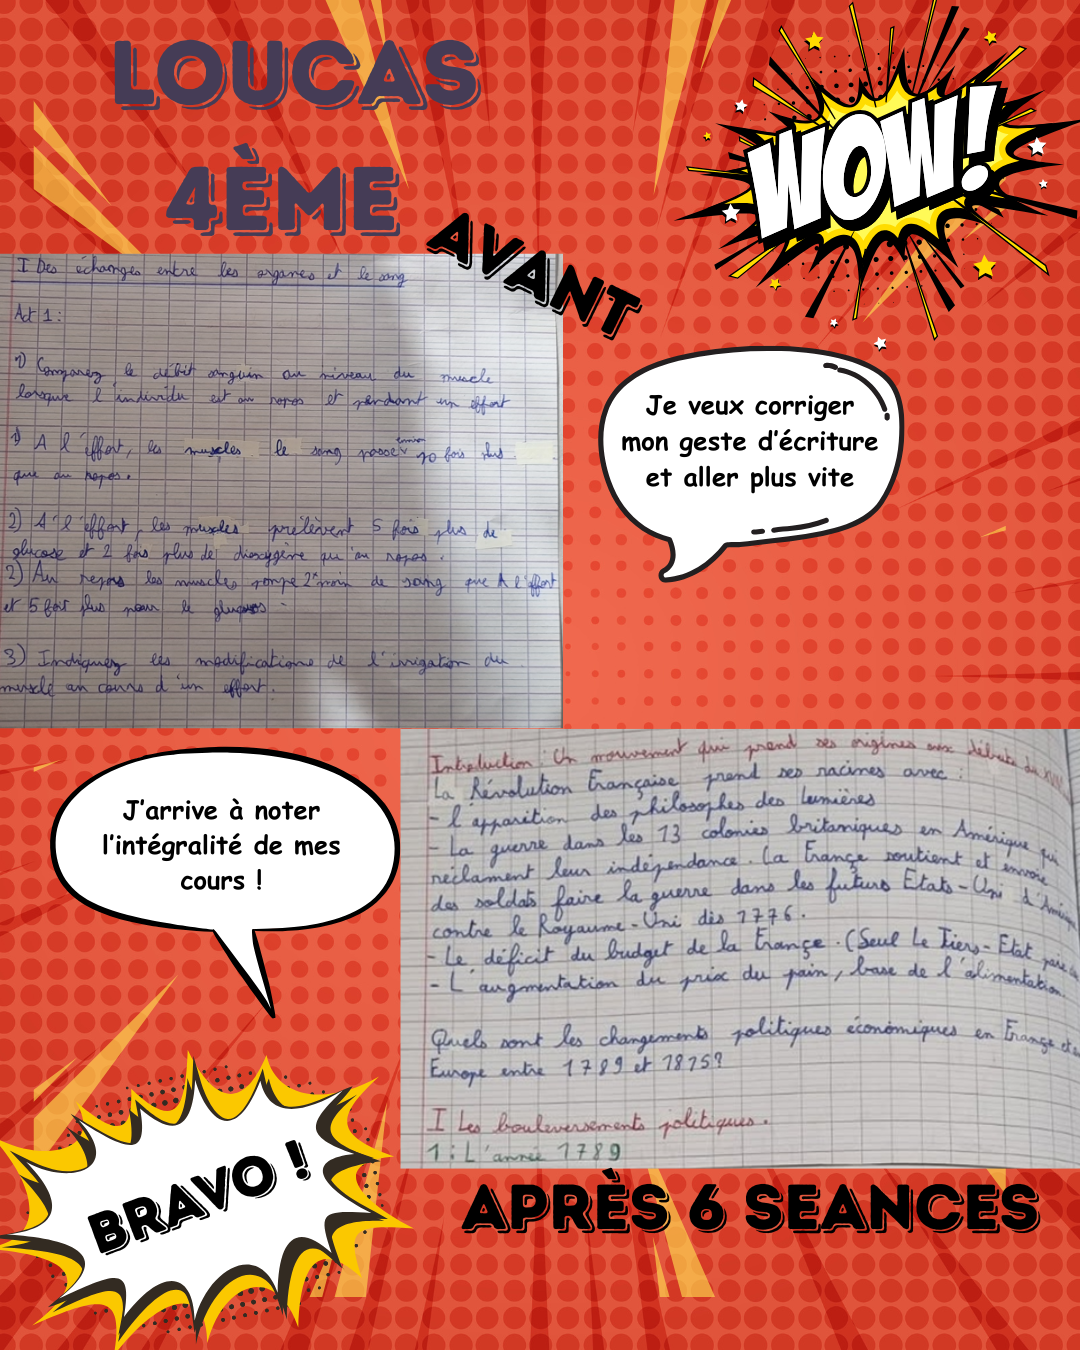 LOUCAS
4ÈME
WOW!
AVANT
I Des échanges entre les organes et le sang
Act 1:
1) Comparez le débit sanguin au niveau du muscle
lorsque l'individu est au repos et pendant un effort
1) A l'effort, les muscles le sang passe environ 10 fois plus
que au repos.
2) A l'effort, les muscles prélèvent 5 fois plus de
glucose et 2 fois plus de dioxygène qu'au repos.
2) Au repos les muscles pompe 2x moin de sang que A l'effort
et 5 foit plus pour le
3) Indiquez les modifications de l'irrigation du
muscle au cours d'un effort.
Je veux corriger
mon geste d'écriture
et aller plus vite
J'arrive à noter
l'intégralité de mes
cours !
Introduction : Un mouvement qui prend ses origines aux débuts du
La Révolution Française prend ses racines avec :
- l'apparition des philosophes des lumières
- La guerre dans les 13 colonies britaniques en Amérique qui
réclament leur indépendance. La Françe soutient et envoie
des soldats faire la guerre dans les futurs Etats-Uni d'Amérique
contre le Royaume-Uni dès 1776.
- Le déficit du budget de la Françe. (Seul Le Tiers-Etat paie
- L'augmentation du prix du pain, base de l'alimentation.
Quels sont les changements politiques économiques en Françe et en
Europe entre 1789 et 1815?
I Les bouleversements politiques.
1: L'année 1789
BRAVO !
APRÈS 6 SEANCES